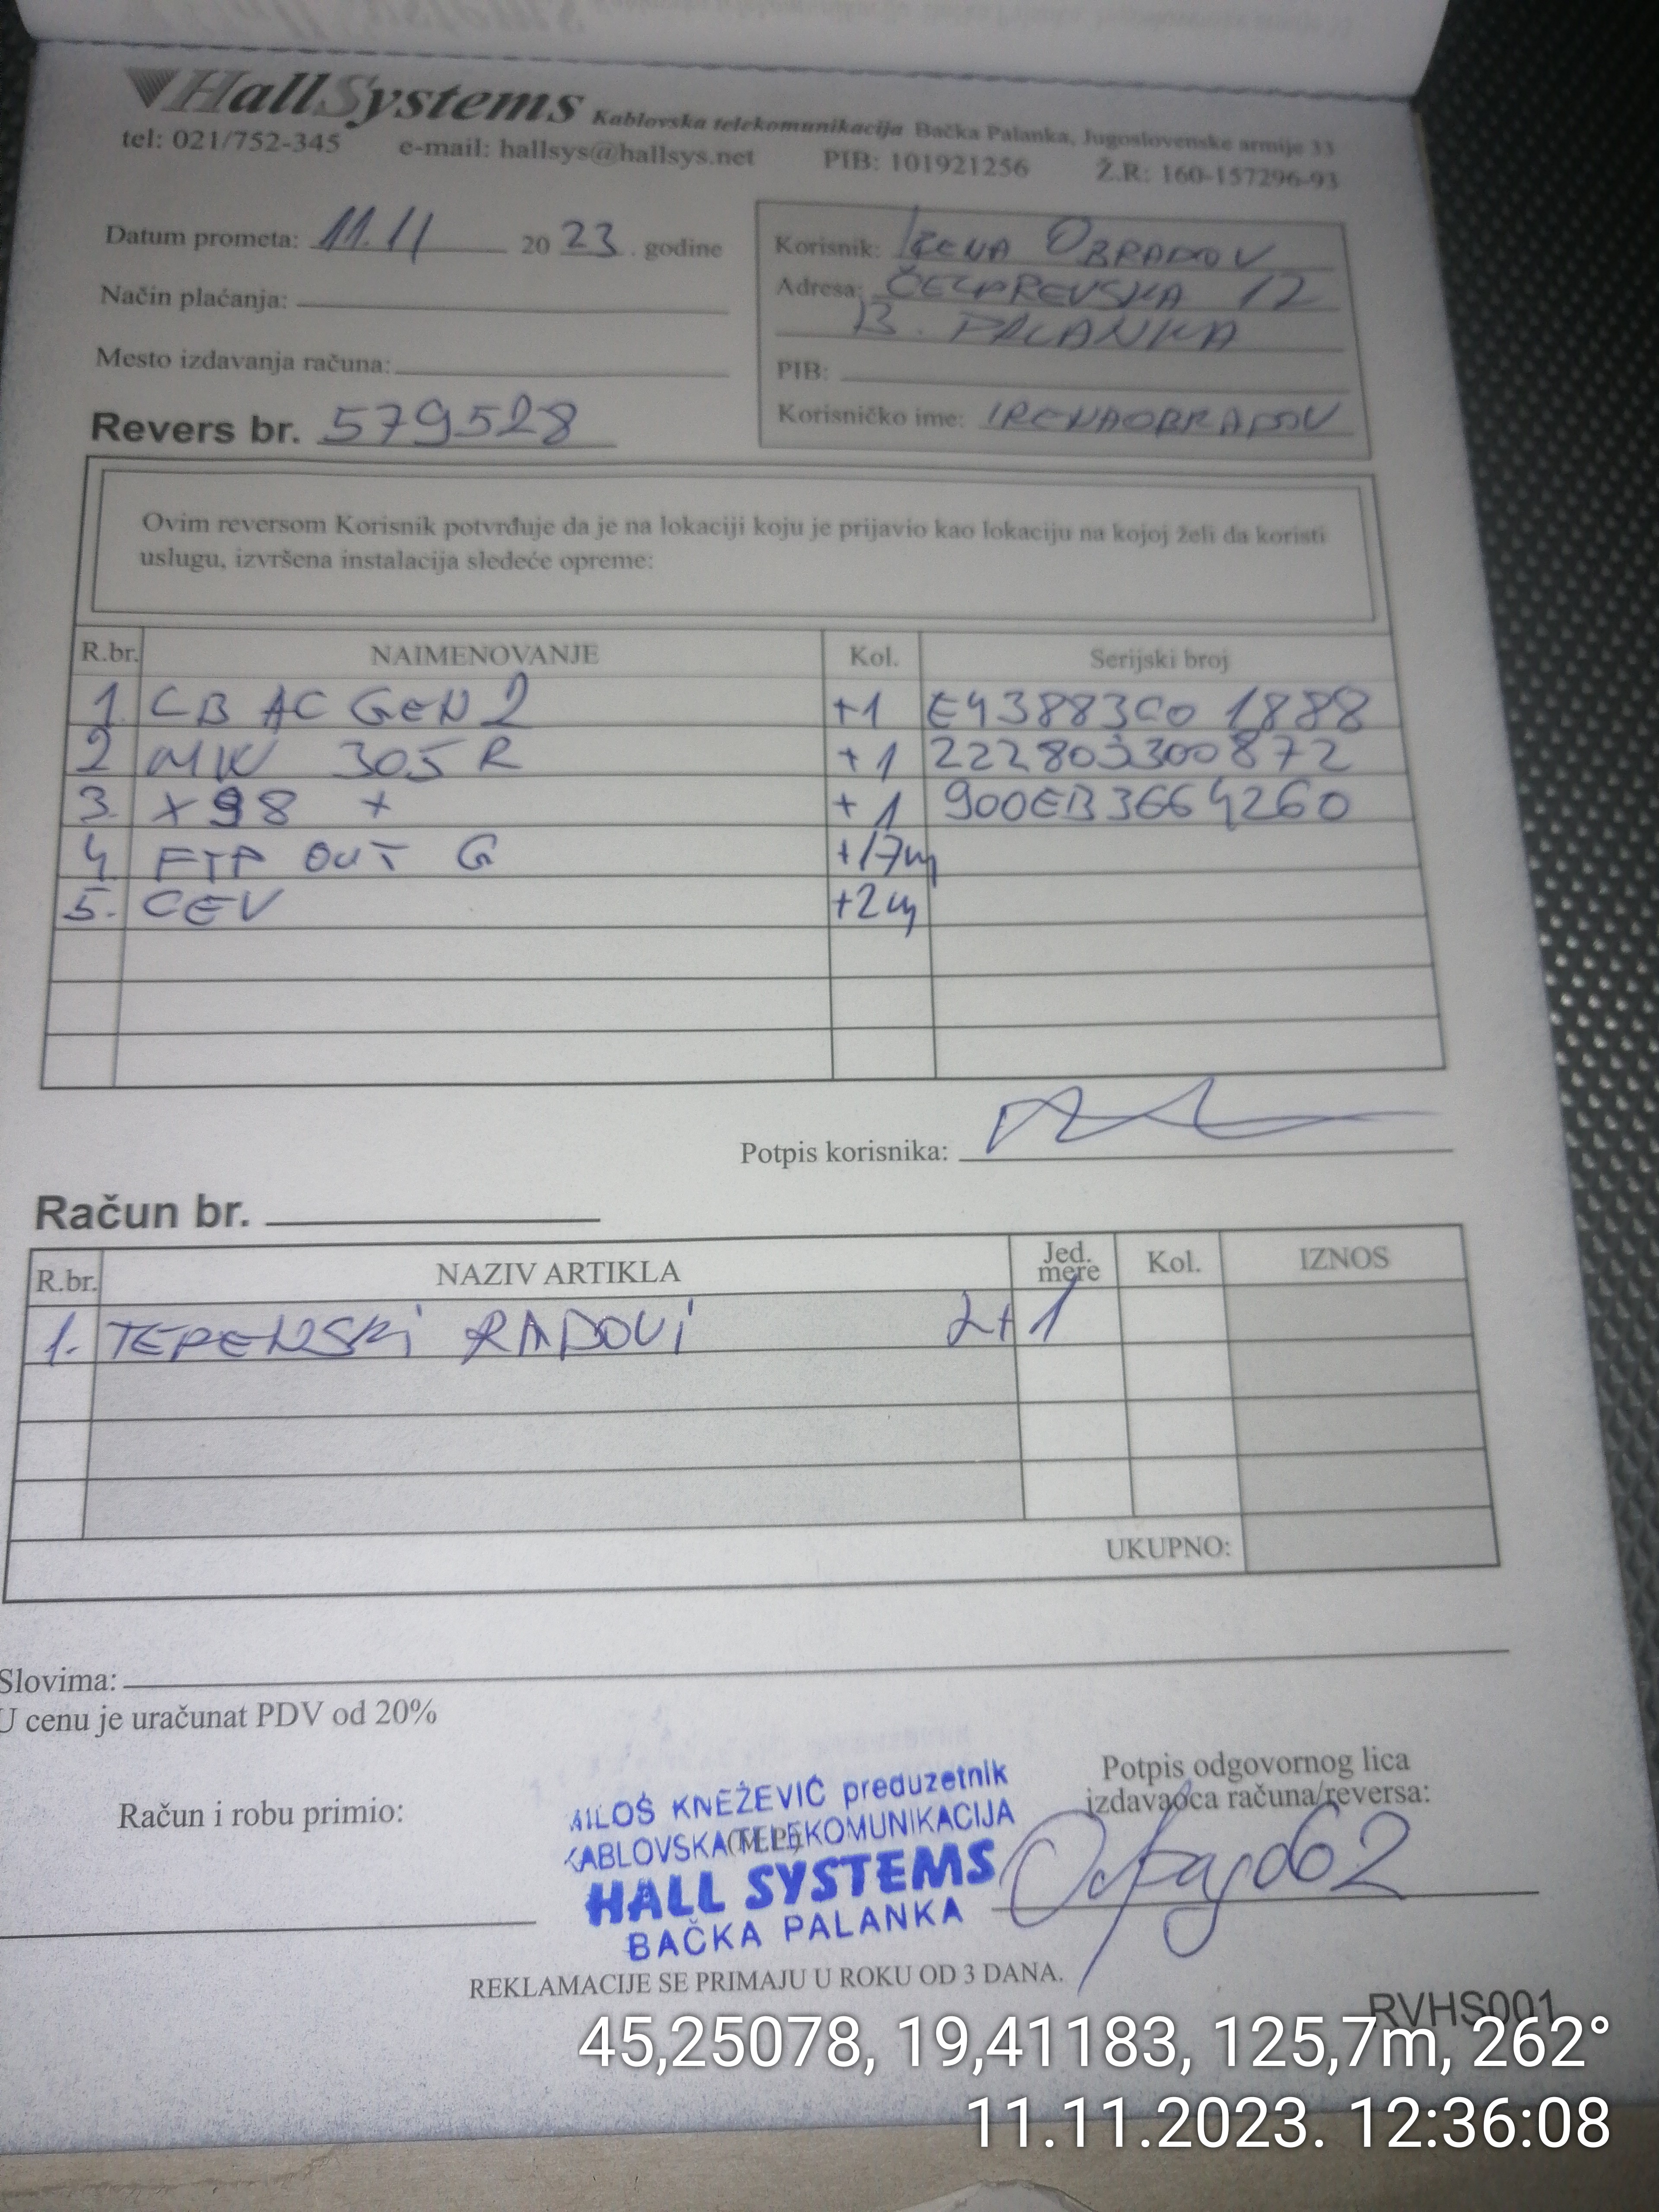 HallSystems Kablovska telekomunikacija Bačka Palanka, Jugoslovenske armije 33
tel: 021/752-345 e-mail: hallsys@hallsys.net PIB: 101921256 Ž.R: 160-157296-93
Datum prometa: 11.11 2023. godine
Način plaćanja:
Mesto izdavanja računa:
Revers br. 579528
Korisnik: IRENA OBRADOV
Adresa: ČELAREVSKA 12
B. PALANKA
PIB:
Korisničko ime: IRENAOBRADOV
Ovim reversom Korisnik potvrđuje da je na lokaciji koju je prijavio kao lokaciju na kojoj želi da koristi
uslugu, izvršena instalacija sledeće opreme:
R.br. NAIMENOVANJE Kol. Serijski broj
1. CB AC GEN2 +1 E43883C01888
2 MW 305R +1 222803300872
3. X98 + +1 900EB3664260
4. FTP OUT G +17m
5. CEV +2m
Potpis korisnika:
Račun br.
R.br. NAZIV ARTIKLA Jed. mere Kol. IZNOS
1. TERENSKI RADOVI 2+1
UKUPNO:
Slovima:
U cenu je uračunat PDV od 20%
Račun i robu primio:
MILOŠ KNEŽEVIĆ preduzetnik
KABLOVSKA TELEKOMUNIKACIJA
(M.P.)
HALL SYSTEMS
BAČKA PALANKA
Potpis odgovornog lica
izdavaoca računa/reversa:
REKLAMACIJE SE PRIMAJU U ROKU OD 3 DANA.
RVHS001
45,25078, 19,41183, 125,7m, 262°
11.11.2023. 12:36:08